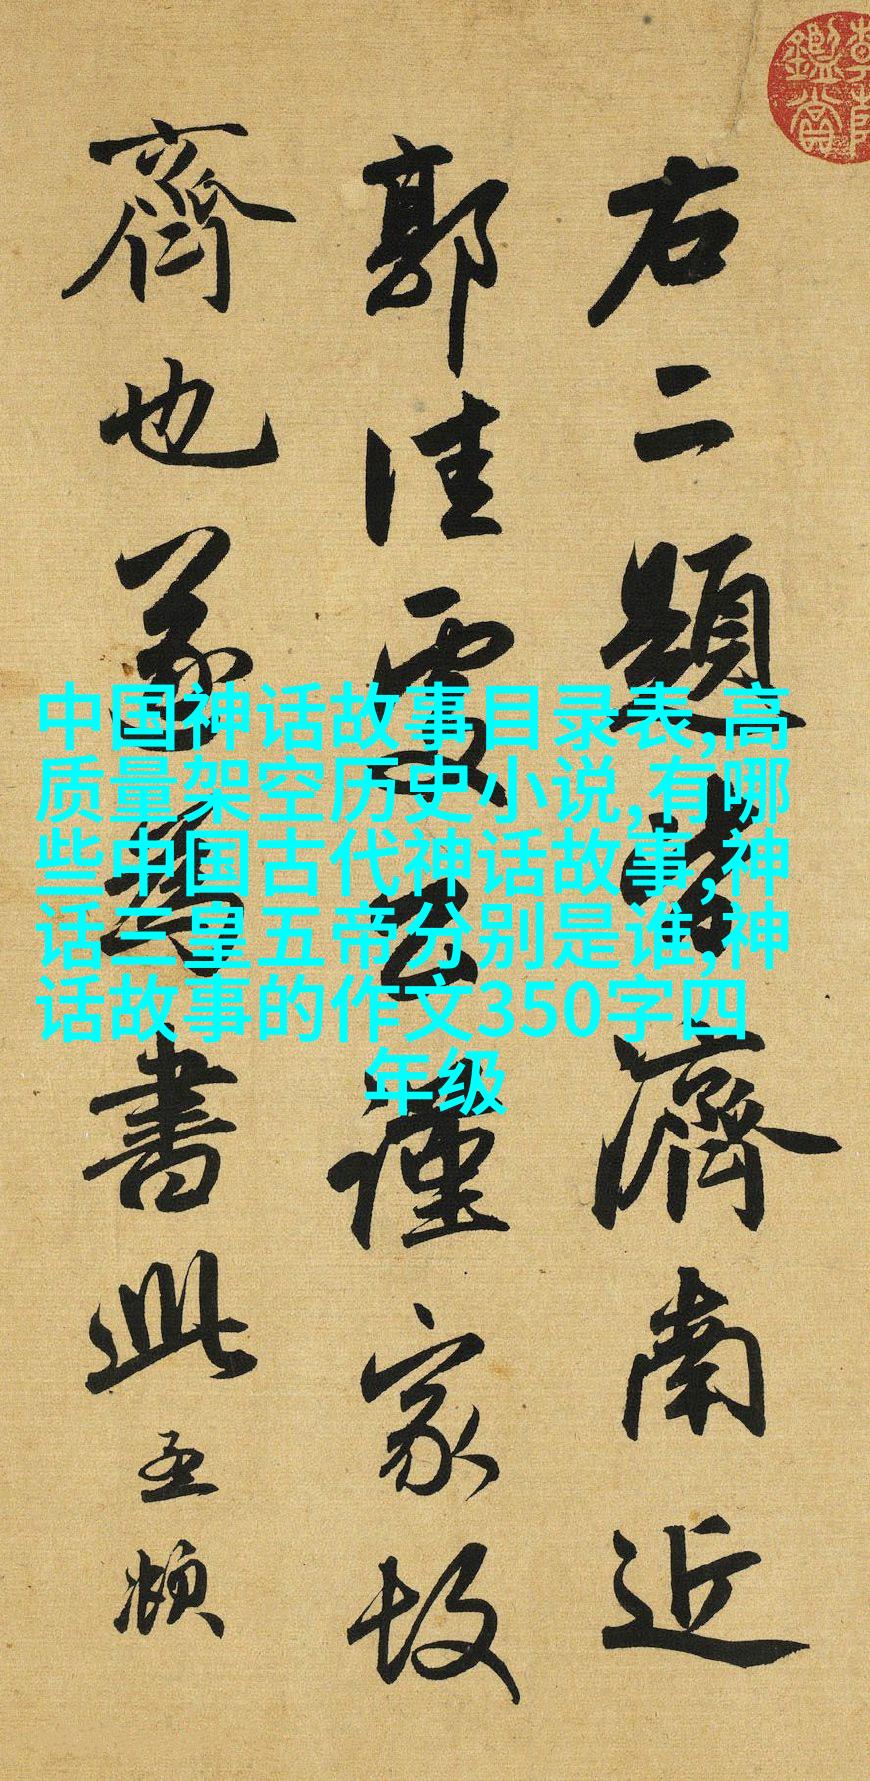 右二題皆濟南近
郭佳處公謹家故
齊也遂為書此孟頫
鑑賞
中国神话故事目录表,高
质量架空历史小说,有哪
些中国古代神话故事,神
话三皇五帝分别是谁,神
话故事的作文350字四
年级